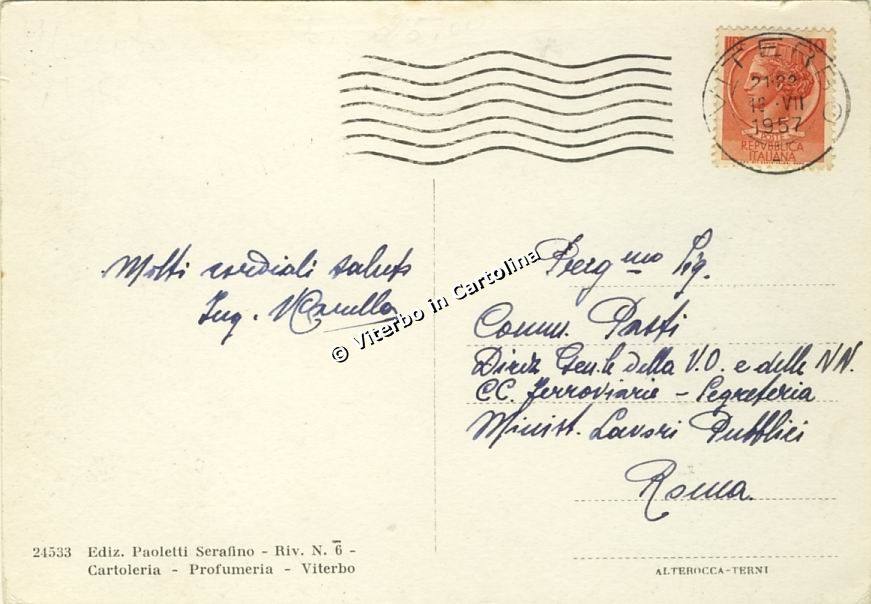 VITERBO
21-22
16 · VII
1957
LIRE 10
POSTE
REPVBBLICA
ITALIANA
Molti cordiali saluti
Ing.
Preg.mo Sig.
Comm. Patti
Direz Gen.le della V.O. e delle NN.
CC. Ferroviarie - Segreteria
Minist. Lavori Pubblici
Roma.
© Viterbo in Cartolina
24533 Ediz. Paoletti Serafino - Riv. N. 6 -
Cartoleria - Profumeria - Viterbo
ALTEROCCA-TERNI